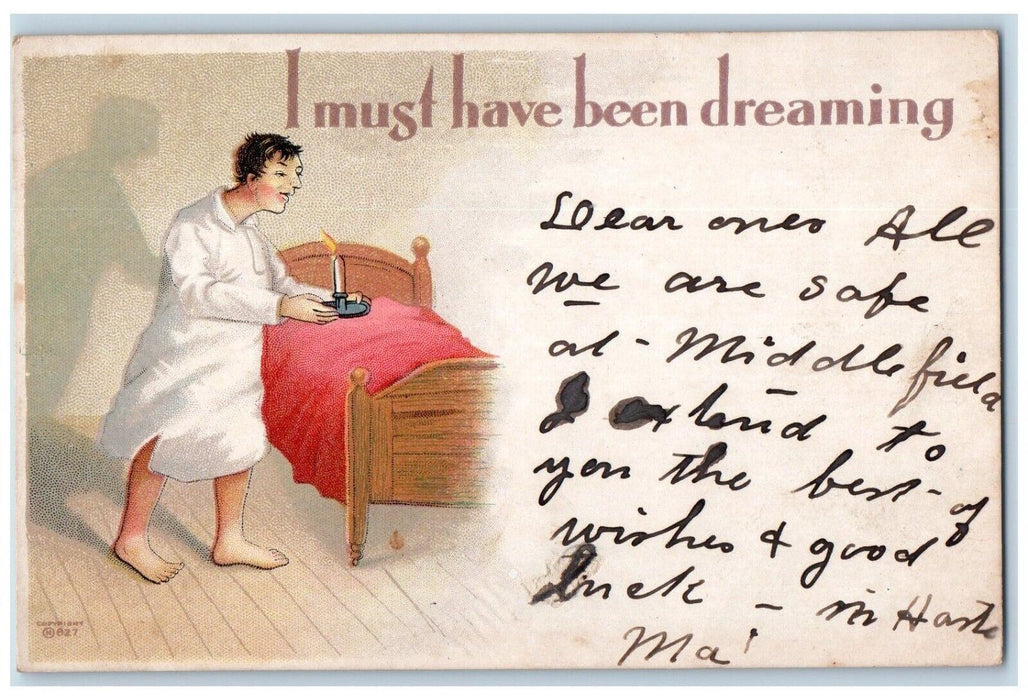 I must have been dreaming
Dear ones All
we are safe
at - Middlefield
I extend to
you the best - of
wishes & good
luck - in Haste
Ma
COPYRIGHT
H 627